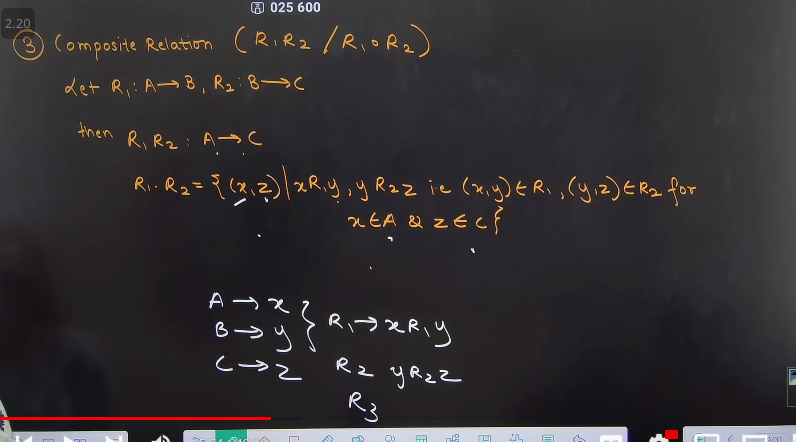 025 600
2.20
③ Composite Relation (R₁R₂ / R₁∘R₂)
Let R₁: A→B, R₂: B→C
then R₁R₂: A→C
R₁·R₂ = {(x,z) | xR₁y, yR₂z i.e (x,y)∈R₁, (y,z)∈R₂ for
x∈A & z∈C}
A → x
B → y } R₁→xR₁y
C → z R₂ yR₂z
R₃